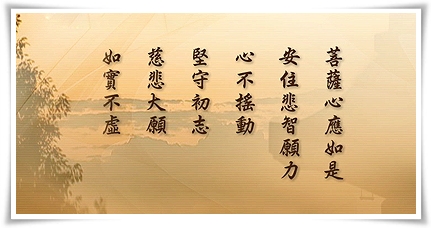 菩薩心應如是
安住悲智願力
心不搖動
堅守初志
慈悲大願
如實不虛